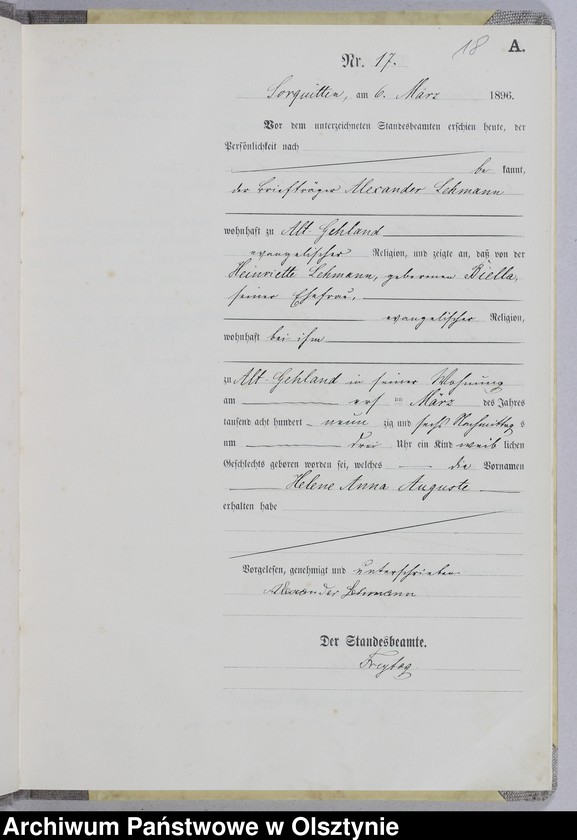 18 A.
Nr. 17.
Sorquitten, am 6. März 1896.
Vor dem unterzeichneten Standesbeamten erschien heute, der
Persönlichkeit nach
be kannt,
der Briefträger Alexander Lehmann
wohnhaft zu Alt-Gehland
evangelischer Religion, und zeigte an, daß von der
Heinriette Lehmann, geborenen Biella,
seiner Ehefrau,
evangelischer Religion,
wohnhaft bei ihm
zu Alt-Gehland in seiner Wohnung
am ersten März des Jahres
tausend acht hundert neun zig und sechs Nachmittag s
um drei Uhr ein Kind weib lichen
Geschlechts geboren worden sei, welches die Vornamen
Helene Anna Auguste
erhalten habe
Vorgelesen, genehmigt und unterschrieben
Alexander Lehmann
Der Standesbeamte.
Freytag
Archiwum Państwowe w Olsztynie